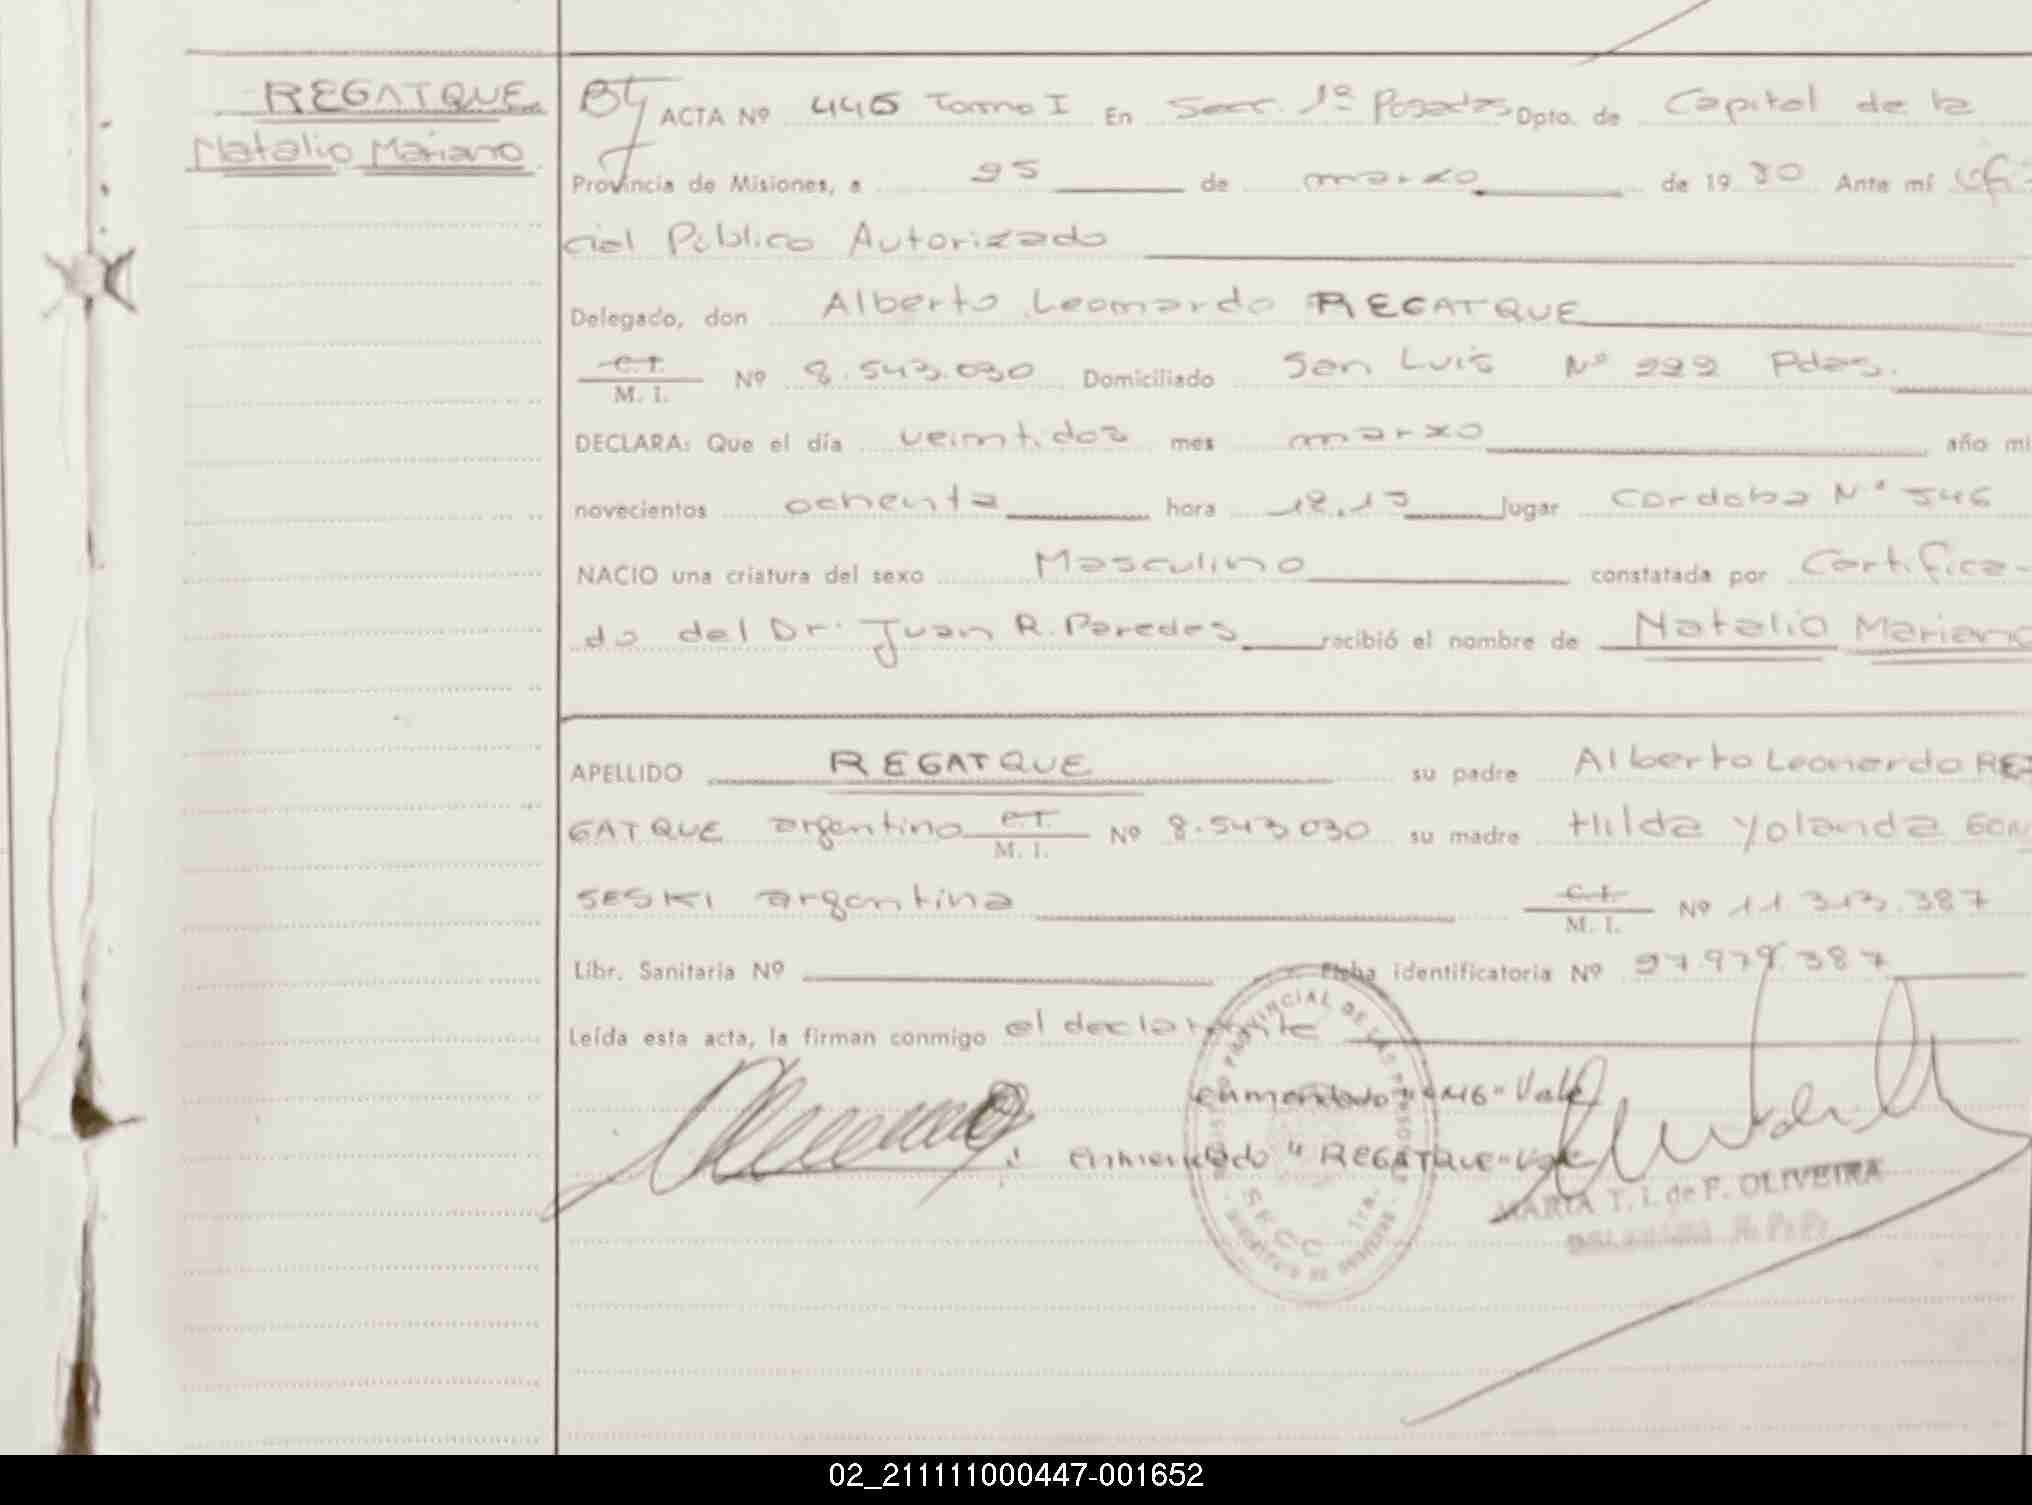 REGATQUE
Natalio Mariano
ACTA Nº 446 Tomo I En Secc. 1ª Posadas Dpto. de Capital de la
Provincia de Misiones, a 25 de marzo de 1980 Ante mí Ofi-
cial Público Autorizado
Delegado, don Alberto Leonardo REGATQUE
C.I. M. I. Nº 8.543.030 Domiciliado San Luis Nº 222 Pdas.
DECLARA: Que el día veintidos mes marzo año mi
novecientos ochenta hora 12,15 lugar Cordoba Nº 546
NACIO una criatura del sexo Masculino constatada por Certifica-
do del Dr. Juan R. Paredes recibió el nombre de Natalio Mariano
APELLIDO REGATQUE su padre Alberto Leonardo RE-
GATQUE argentino C.I. M. I. Nº 8.543.030 su madre Hilda Yolanda GON
SESKI argentina C.I. M. I. Nº 11.313.387
Libr. Sanitaria Nº Ficha identificatoria Nº 27.979.387
Leída esta acta, la firman conmigo el declarante
enmendado "446" Vale
enmendado "REGATQUE" Vale
PROVINCIAL DE LAS PERSONAS
SECC. 1ra.
MARIA T. I. de F. OLIVEIRA
02_211111000447-001652